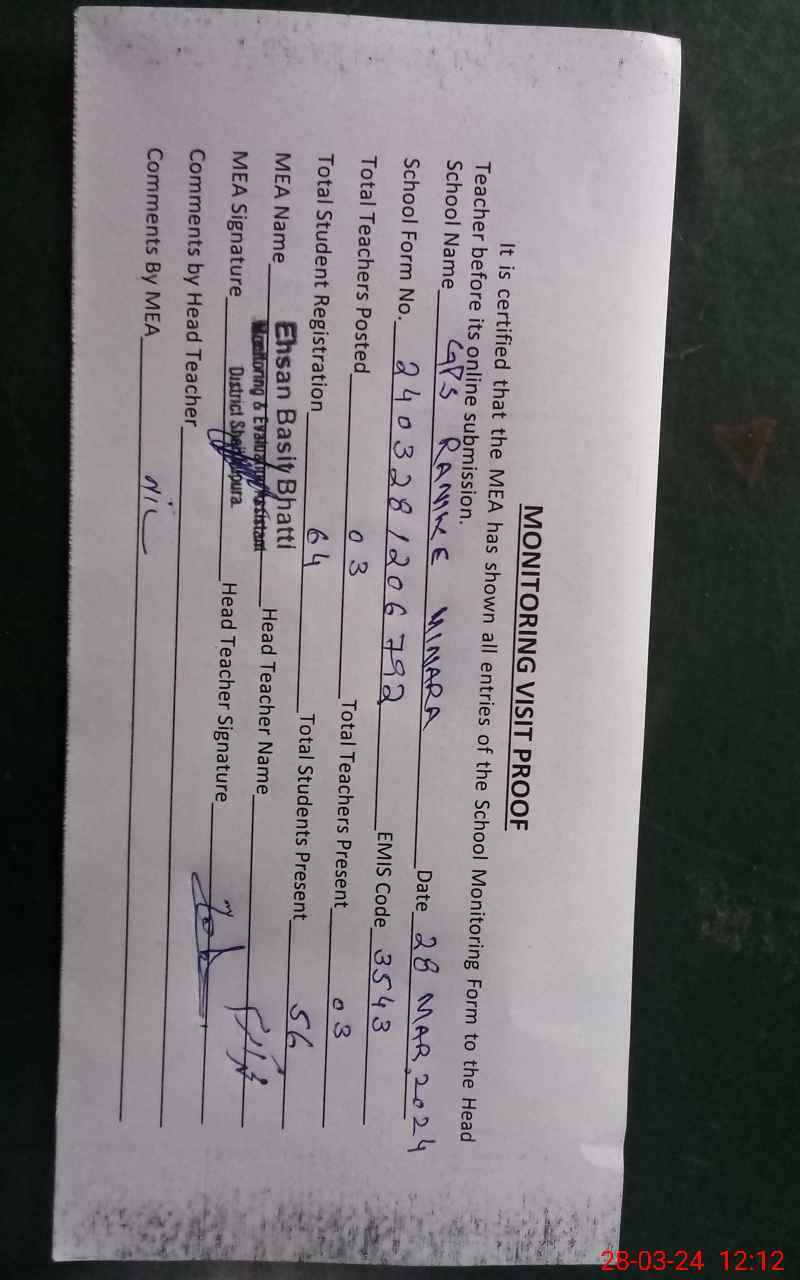 MONITORING VISIT PROOF
It is certified that the MEA has shown all entries of the School Monitoring Form to the Head
Teacher before its online submission.
School Name GPS RANIKE MINARA Date 28 MAR, 2024
School Form No. 240328/206792 EMIS Code 3543
Total Teachers Posted 03 Total Teachers Present 03
Total Student Registration 64 Total Students Present 56
MEA Name Ehsan Basit Bhatti Head Teacher Name
Monitoring & Evaluation Assistant
MEA Signature District Sheikhupura Head Teacher Signature
Comments by Head Teacher
Comments By MEA NIL
28-03-24 12:12